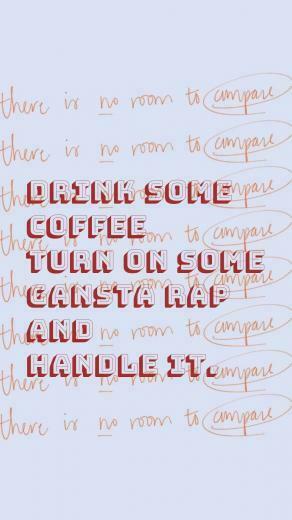 there is no room to compare
there is no room to compare
DRINK SOME
COFFEE
TURN ON SOME
GANSTA RAP
AND
HANDLE IT.
there is no room to compare
there is no room to compare
there is no room to compare
there is no room to compare
there is no room to compare
there is no room to compare